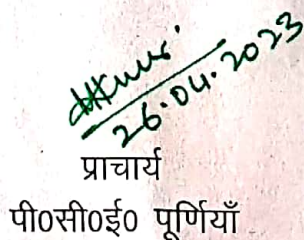 26.04.2023
प्राचार्य
पी0सी0ई0 पूर्णियाँ